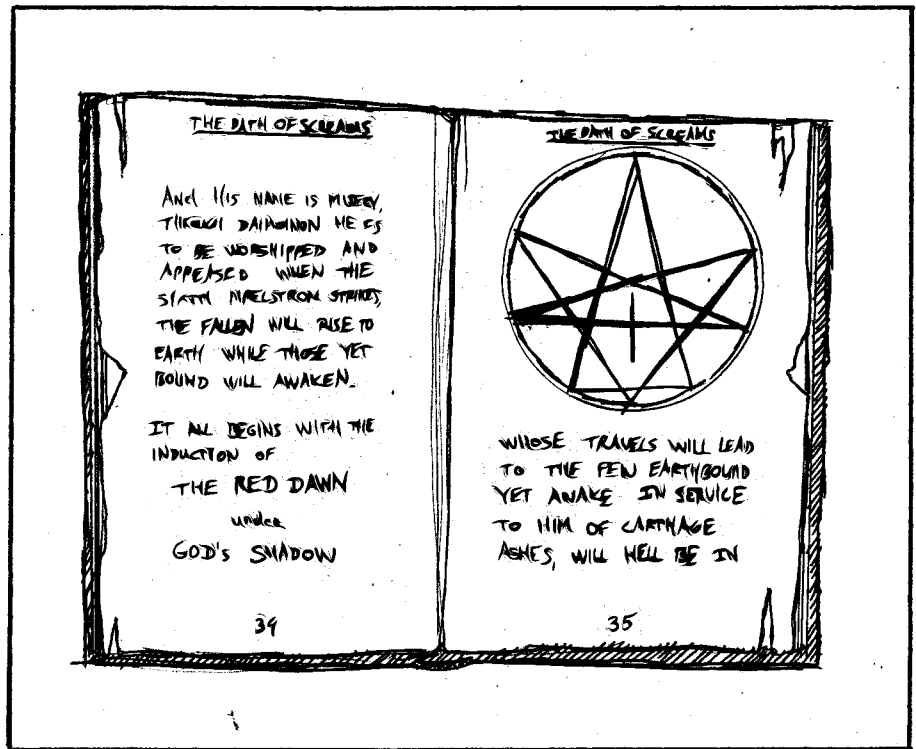 THE PATH OF SCREAMS
AND HIS NAME IS MISERY,
THROUGH DAIMONION HE IS
TO BE WORSHIPPED AND
APPEASED WHEN THE
SIXTH MAELSTROM STRIKES,
THE FALLEN WILL RISE TO
EARTH WHILE THOSE YET
BOUND WILL AWAKEN.
IT ALL BEGINS WITH THE
INDUCTION OF
THE RED DAWN
under
GOD'S SHADOW
34
THE PATH OF SCREAMS
WHOSE TRAVELS WILL LEAD
TO THE FEW EARTHBOUND
YET AWAKE IN SERVICE
TO HIM OF CARTHAGE
ASHES, WILL HELL BE IN
35